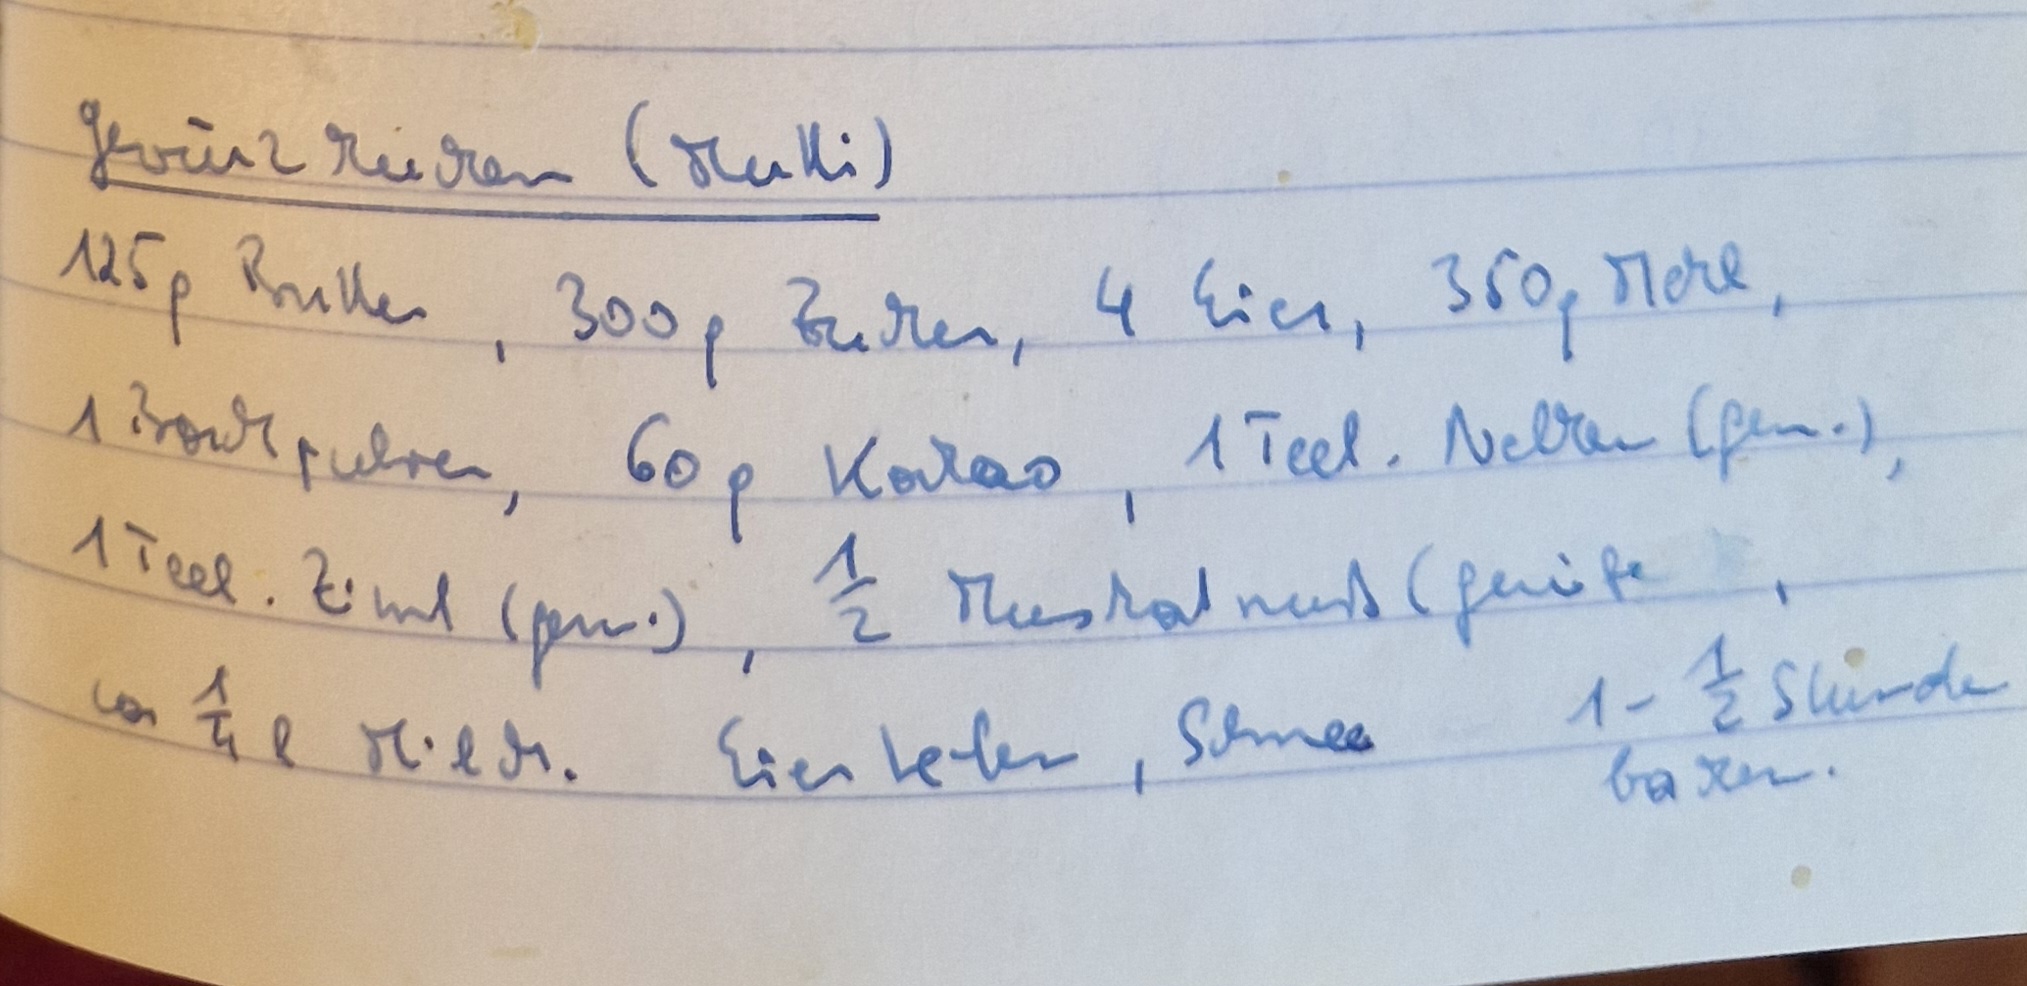 Gewürzkuchen (Mutti)
125g Butter, 300g Zucker, 4 Eier, 350g Mehl,
1 Backpulver, 60g Kakao, 1 Teel. Nelken (gem.),
1 Teel. Zimt (gem.), 1/2 Muskatnuß (
ca 1/4 l Milch. Eier Schnee 1-1/2 Stunde
backen.